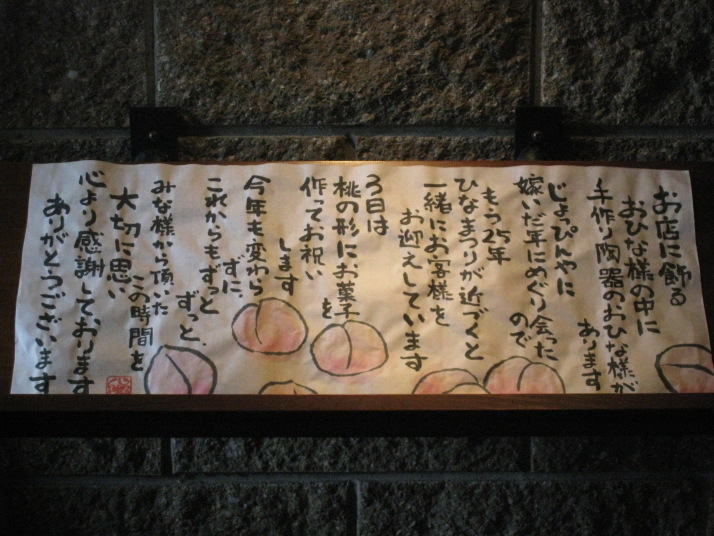 お店に飾る
おひな様の中に
手作り陶器のおひな様が
あります
じょっぴんやに
嫁いだ年にめぐり会った
ので
もう25年
ひなまつりが近づくと
一緒にお客様を
お迎えしています
3日は
桃の形にお菓子を
作ってお祝い
します
今年も変わら
ずに、
これからもずっと
ずっと、
みな様から頂いた
この時間を
大切に思い
心より感謝しております
ありがとうございます